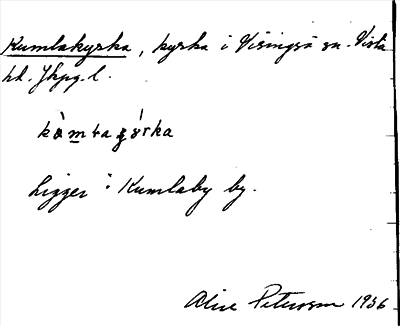 Kumlakyrka, kyrka i Visingsö sn. Vista
hd. Jkpg. l.
Ligger i Kumlaby by.
Alice Peterson 1936